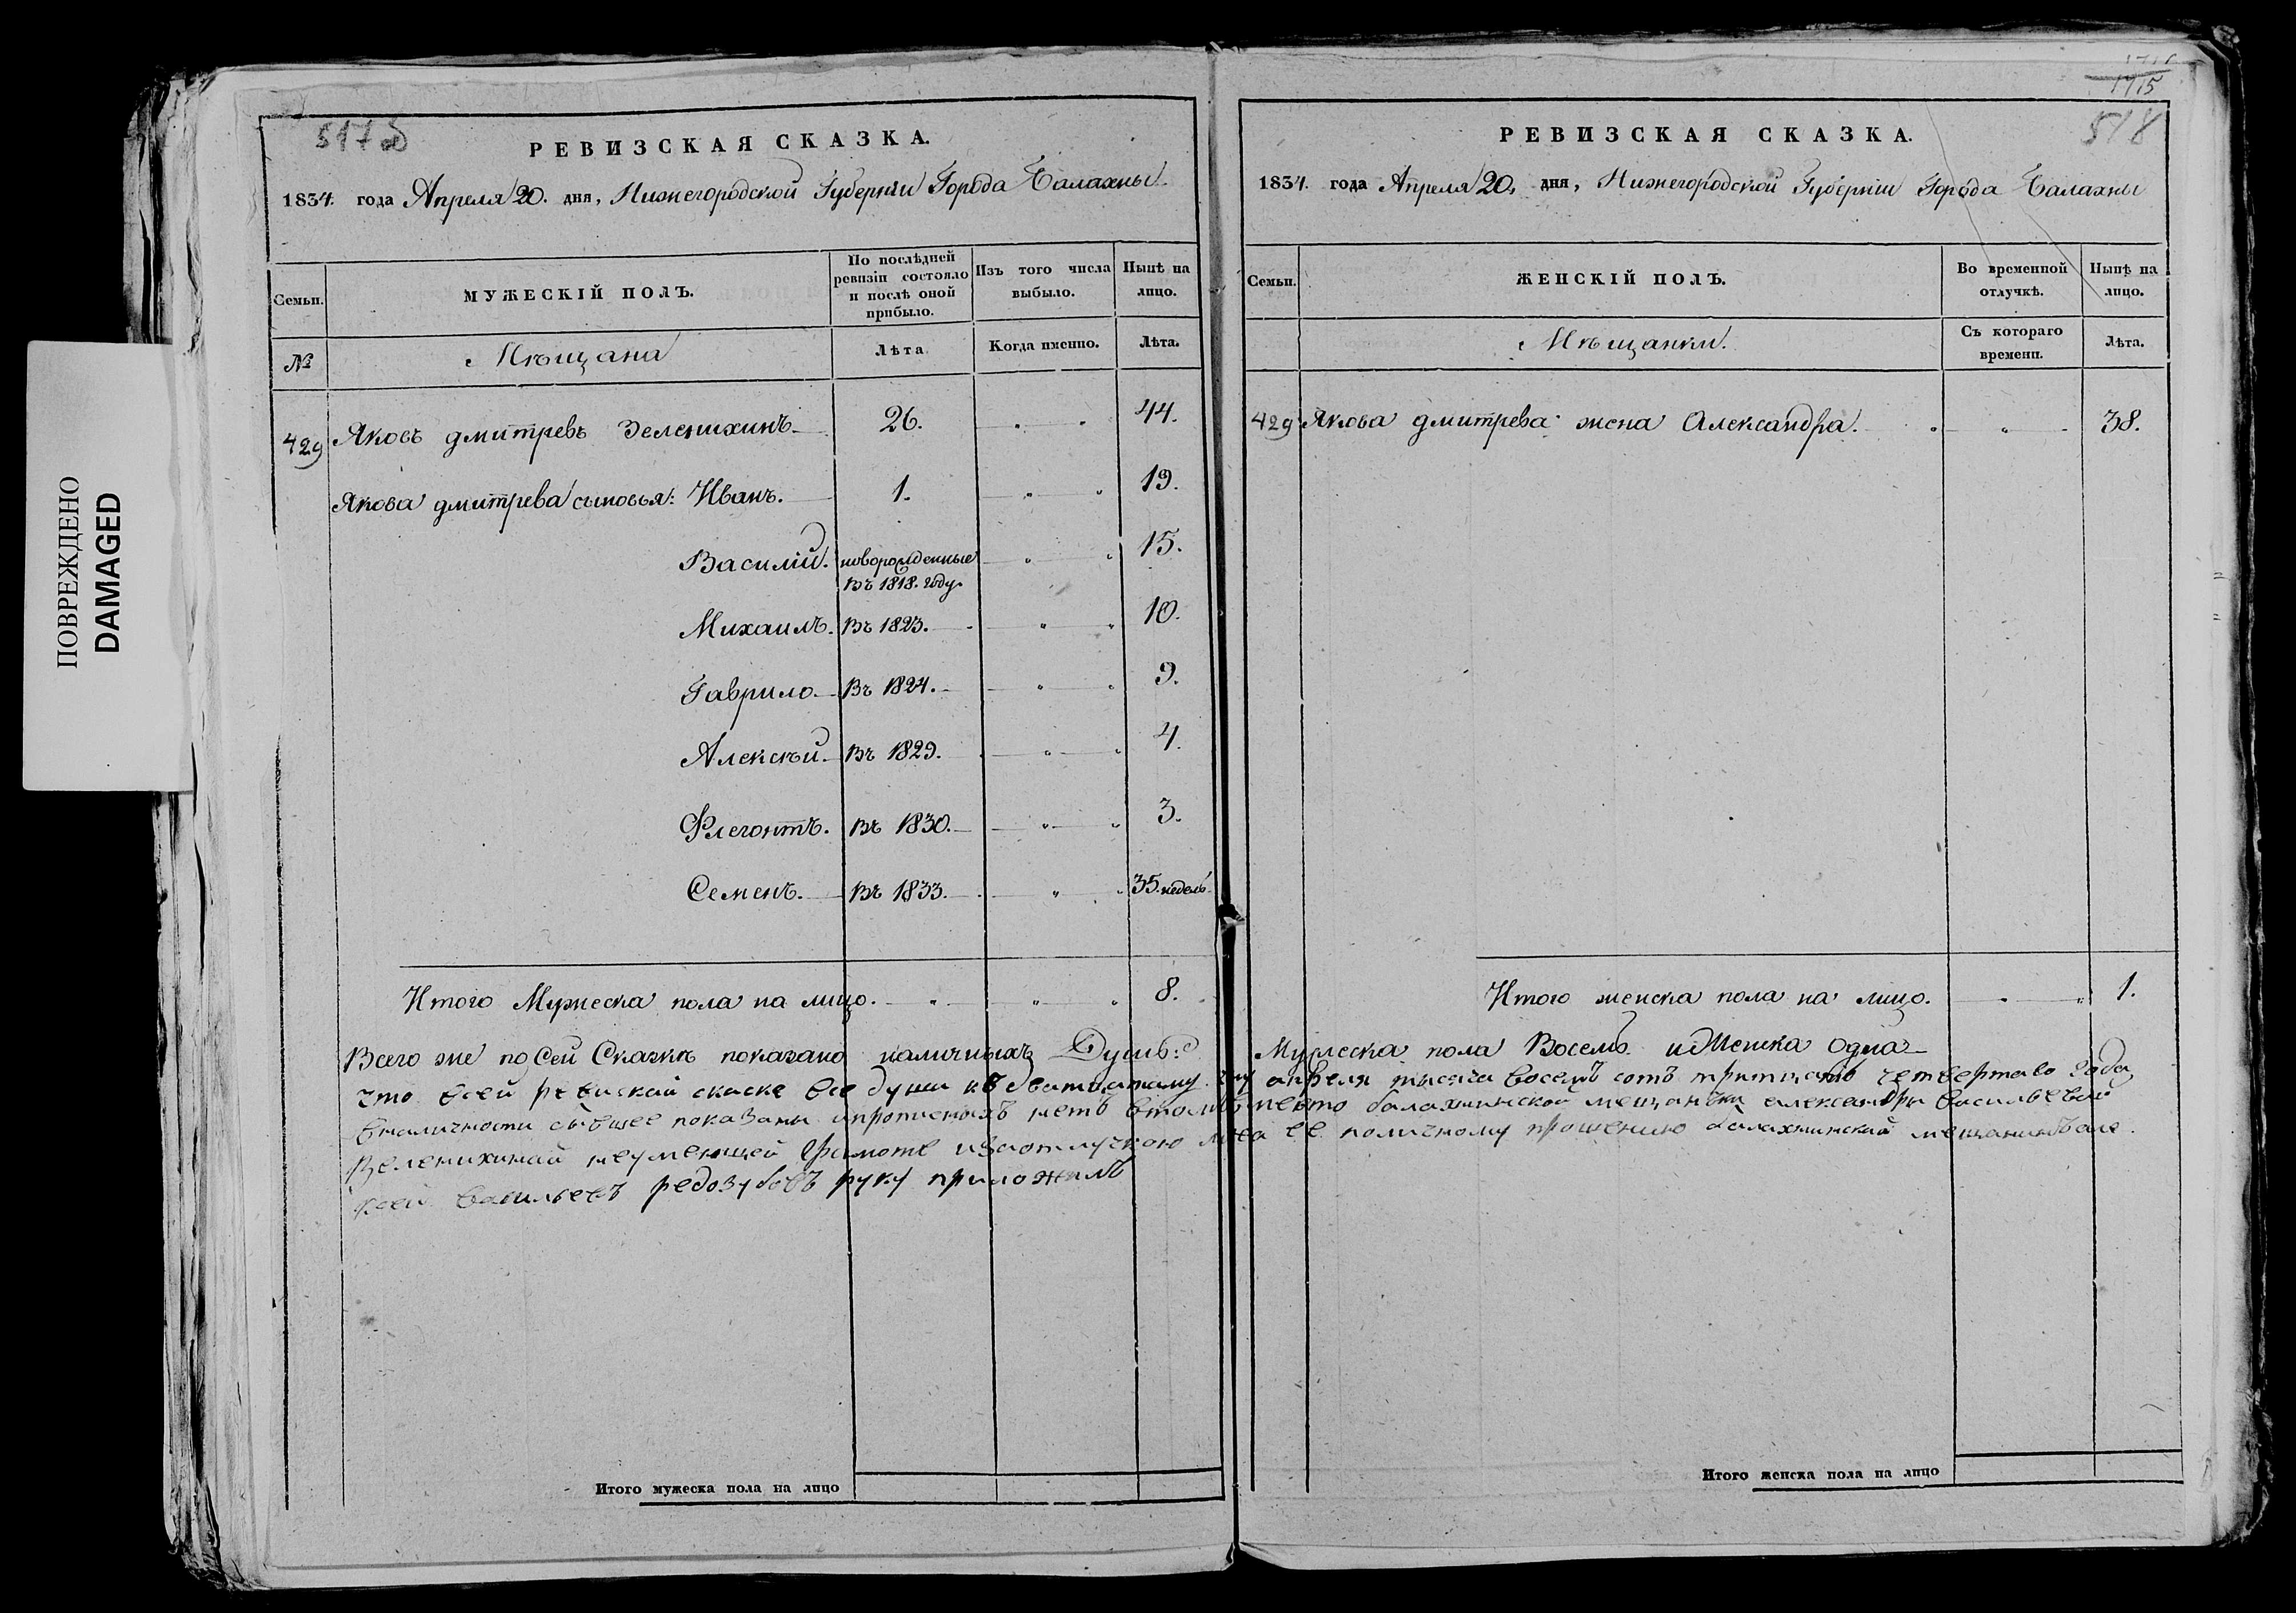 ПОВРЕЖДЕНО
DAMAGED
517 об
РЕВИЗСКАЯ СКАЗКА.
1834. года Апреля 20. дня, Нижегородской Губернiи Города Балахны.
Семьи.
МУЖЕСКІЙ ПОЛЪ.
По послѣдней ревизіи состояло и послѣ оной прибыло.
Изъ того числа выбыло.
Нынѣ на лицо.
№
Мѣщана
Лѣта
Когда именно.
Лѣта.
429 Яковъ дмитревъ Зеленихинъ 26. " " 44.
Якова дмитрева сыновья: Иванъ. 1. " " 19.
Василій. новорожденные " " 15.
въ 1818. году.
Михаилъ. Въ 1823. " " 10.
Гаврило. Въ 1824. " " 9.
Алексѣй. Въ 1829. " " 4.
Флегонтъ. Въ 1830. " " 3.
Семенъ. Въ 1833. " " 35. недель
Итого Мужеска пола на лицо. " " " 8.
1715
518
РЕВИЗСКАЯ СКАЗКА.
1834. года Апреля 20. дня, Нижегородской Губерніи Города Балахны
Семьи.
ЖЕНСКІЙ ПОЛЪ.
Во временной отлучкѣ.
Нынѣ на лицо.
Мѣщанки.
Съ котораго времени.
Лѣта.
429 Якова дмитрева жена Александра. " " 38.
Итого женска пола на лицо. " " 1.
Всего же по Сей Сказкѣ показано наличныхъ Душъ: Мужеска пола Восемь и Женска одна
что всей ревиской скаске все души къ дватцатому чи апреля тысяча восемъ сотъ тритцать четвертаво года
вналичности бывшее показаны ипрописныхъ нетъ втомъ вместо балахнинской мещанъки александры васильевой
Зеленихинай неумеющей грамоте изаотлучкою мужа ее поличному прошению балахнинской мещанинъ але
ксей васильевъ редозубовъ руку приложилъ
Итого мужеска пола на лицо
Итого женска пола на лицо